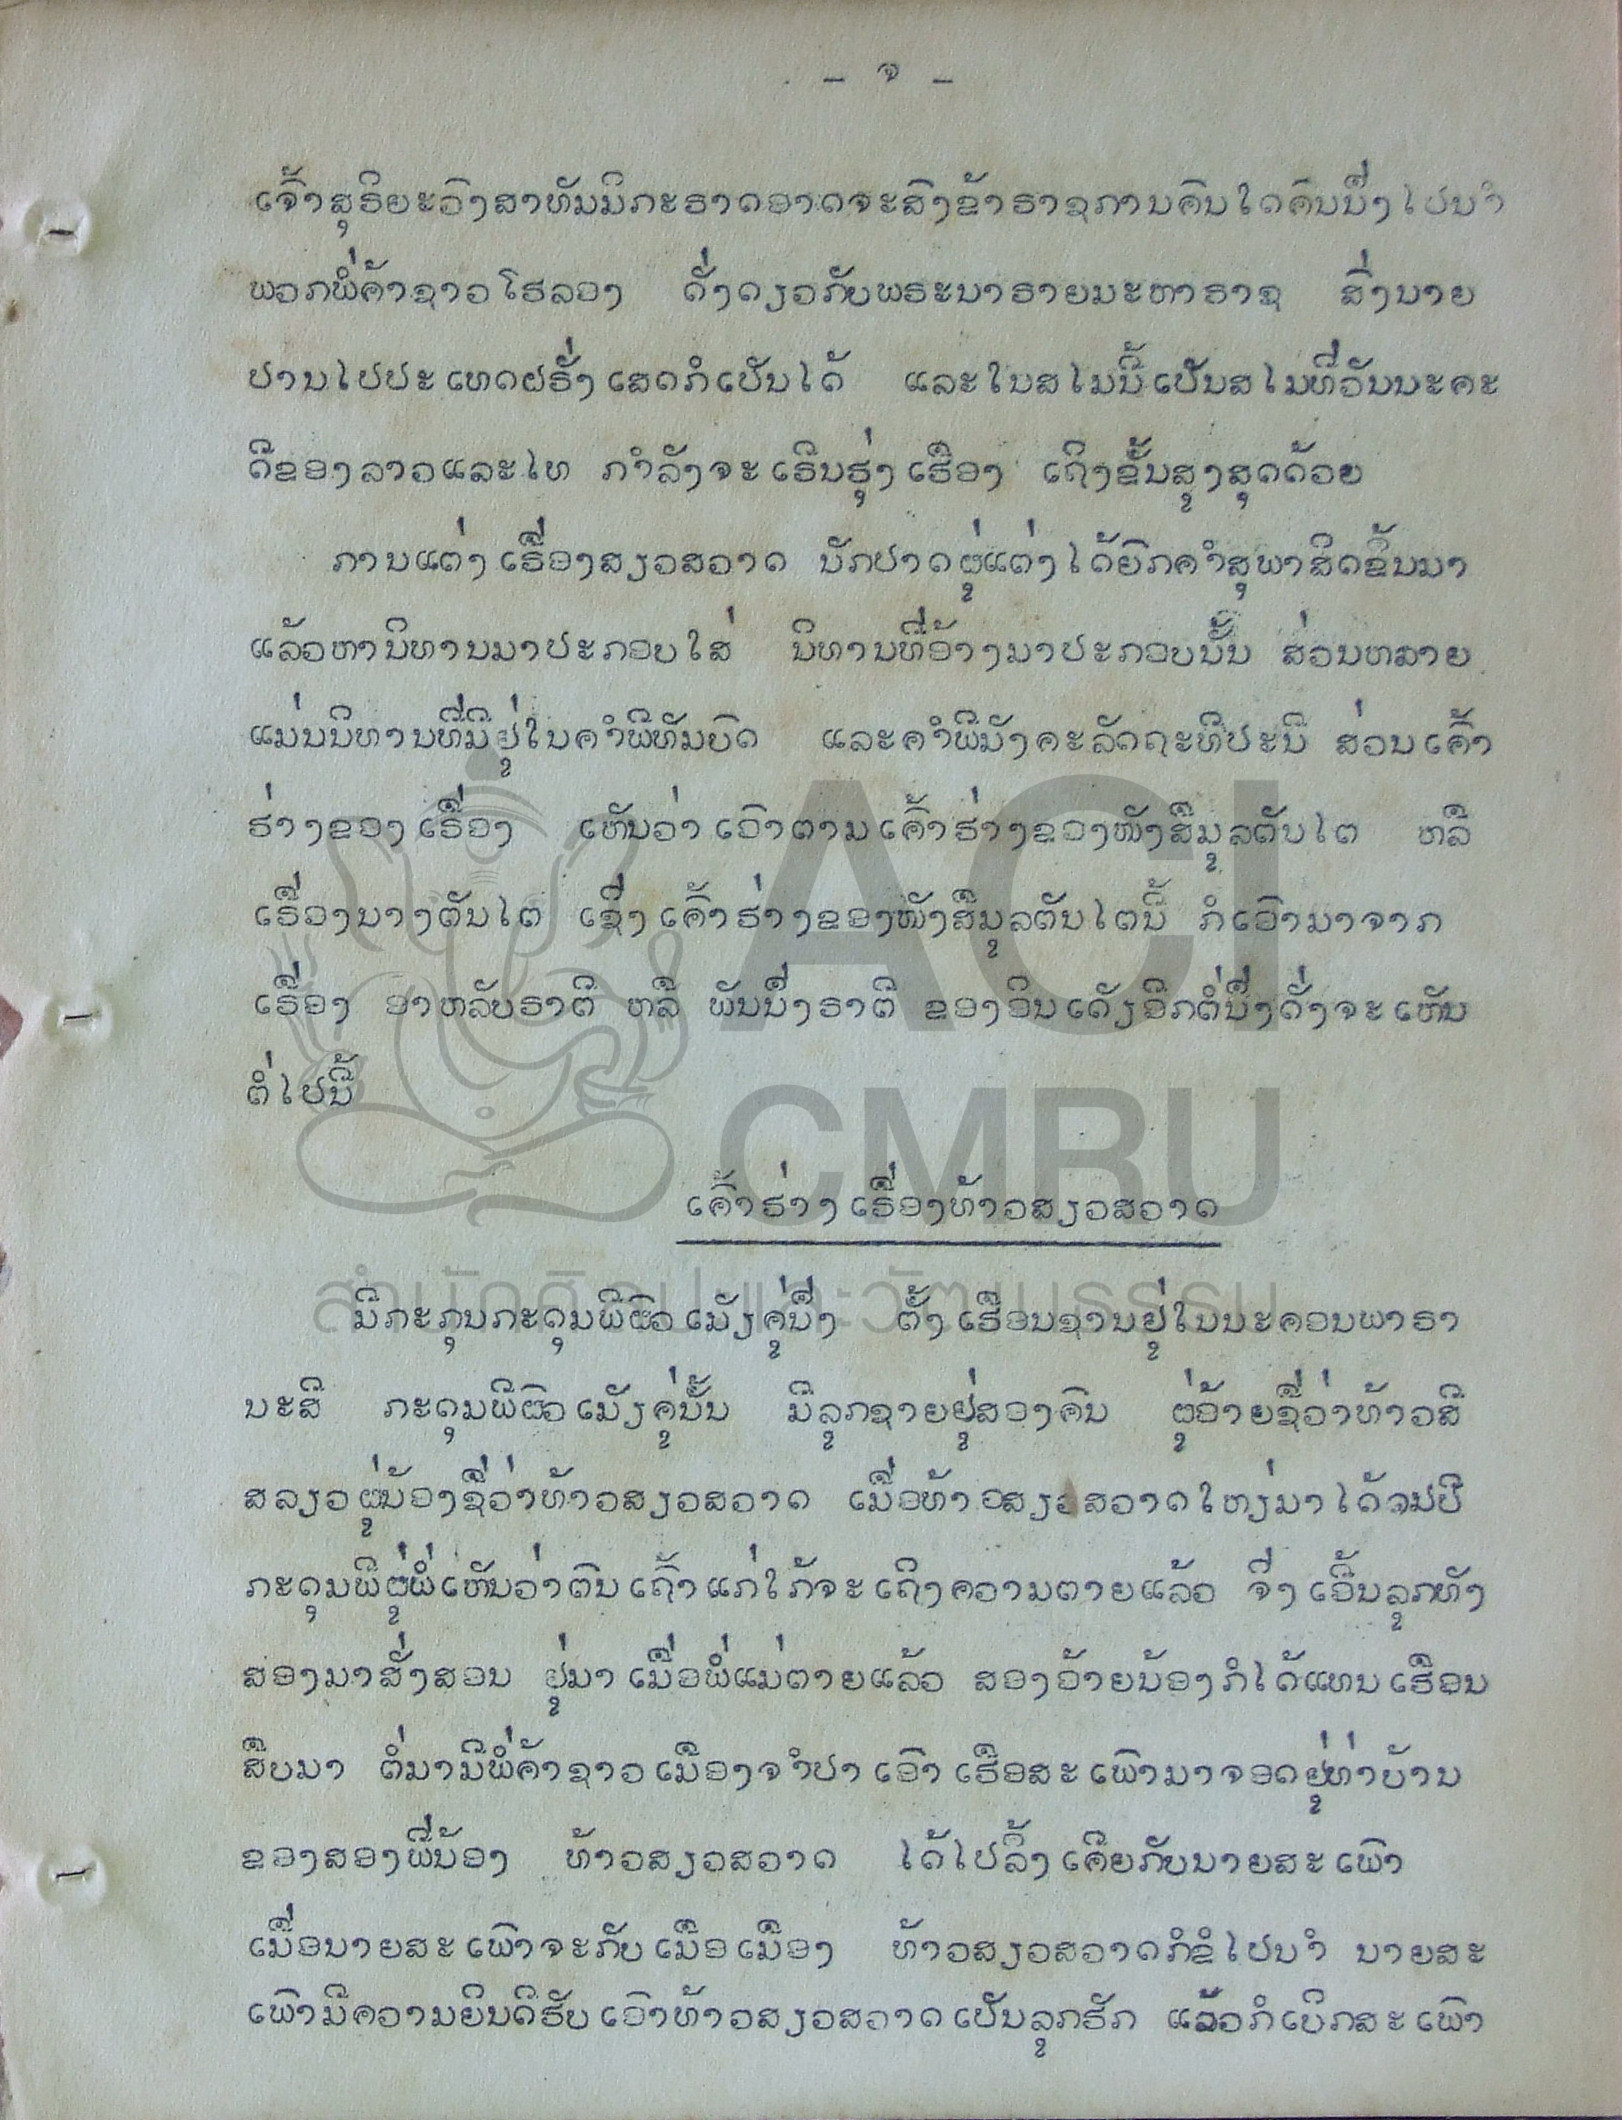 - ຈ -
ເຈົ້າສຸຣິຍະວົງສາທັມມິກະຣາດອາດຈະສົ່ງຂ້າຣາຊການຄົນໃດຄົນນຶ່ງໄປນຳ
ພວກພໍ່ຄ້າຊາວໂຮລອງ ດັ່ງດຽວກັບພຣະນາຣາຍມະຫາຣາຊ ສົ່ງນາຍ
ປານໄປປະເທດຝຣັ່ງເສດກໍເປັນໄດ້ ແລະໃນສໄມນີ້ເປັນສໄມທີ່ວັນນະຄະ
ດີຂອງລາວແລະໄທ ກຳລັງຈະເຣີນຮຸ່ງເຮືອງ ເຖິງຂັ້ນສູງສຸດດ້ວຍ
ການແຕ່ງເຣື່ອງສຽວສວາດ ນັກປາດຜູ່ແຕ່ງໄດ້ຍົກຄຳສຸພາສິດຂຶ້ນມາ
ແລ້ວຫານິທານມາປະກອບໃສ່ ນິທານທີ່ອ້າງມາປະກອບນັ້ນ ສ່ວນຫລາຍ
ແມ່ນນິທານທີ່ມີຢູ່ໃນຄຳພີທັມບົດ ແລະຄຳພີມັງຄະລັດຖະທີປະນີ ສ່ວນເຄົ້າ
ຮ່າງຂອງເຣື່ອງ ເຫັນວ່າເອົາຕາມເຄົ້າຮ່າງຂອງໜັງສືມູລຕັນໄຕ ຫລື
ເຣື່ອງນາງຕັນໄຕ ເຊິ່ງເຄົ້າຮ່າງຂອງໜັງສືມູລຕັນໄຕນີ້ ກໍເອົາມາຈາກ
ເຣື່ອງ ອາຫລັບຣາຕີ ຫລື ພັນນຶ່ງຣາຕີ ຂອງອິນເດັຽອີກຕໍ່ນຶ່ງດັ່ງຈະເຫັນ
ຕໍ່ໄປນີ້
ເຄົ້າຮ່າງເຣື່ອງທ້າວສຽວສວາດ
ມີກະກຸນກະດຸມພີຜົວເມັຽຄູ່ນຶ່ງ ຕັ້ງເຮືອນຊານຢູ່ໃນນະຄອນພາຣາ
ນະສີ ກະດຸມພີຜົວເມັຽຄູ່ນັ້ນ ມີລູກຊາຍຢູ່ສອງຄົນ ຜູ່ອ້າຍຊື່ວ່າທ້າວສີ
ສລຽວຜູ່ນ້ອງຊື່ວ່າທ້າວສຽວສວາດ ເມື່ອທ້າວສຽວສວາດໃຫຽ່ມາໄດ້ ປີ
ກະດຸມພີຜູ່ພໍ່ເຫັນວ່າຕົນເຖົ້າແກ່ໃກ້ຈະເຖິງຄວາມຕາຍແລ້ວ ຈຶ່ງເອີ້ນລູກທັງ
ສອງມາສັ່ງສອນ ຢູ່ມາເມື່ອພໍ່ແມ່ຕາຍແລ້ວ ສອງອ້າຍນ້ອງກໍໄດ້ແທນເຮືອນ
ສືບມາ ຕໍ່ມາມີພໍ່ຄ້າຊາວເມືອງຈຳປາເອົາເຮືອສະເພົາມາຈອດຢູ່ທ່າບ້ານ
ຂອງສອງພີ່ນ້ອງ ທ້າວສຽວສວາດ ໄດ້ໄປລິ້ງເຄີຍກັບນາຍສະເພົາ
ເມື່ອນາຍສະເພົາຈະກັບເມືອເມືອງ ທ້າວສຽວສວາດກໍຂໍໄປນຳ ນາຍສະ
ເພົາມີຄວາມຍິນດີຮັບເອົາທ້າວສຽວສວາດເປັນລູກຮັກ ແລ້ວກໍເບີກສະເພົາ
ACI
CMRU
สำนักศิลปและวัฒนธรรม